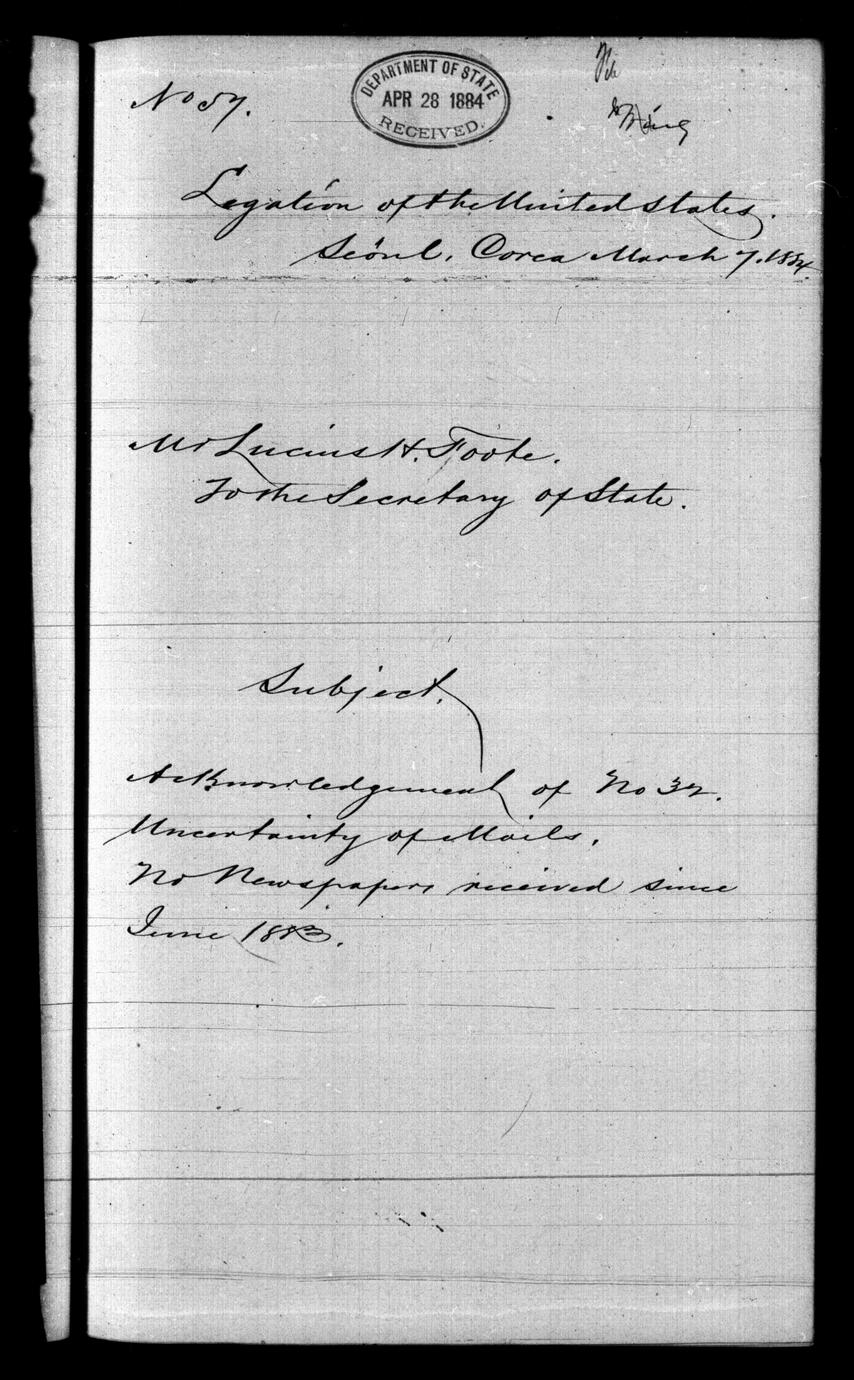 No 57.
DEPARTMENT OF STATE
APR 28 1884
RECEIVED.
Legation of the United States.
Séoul, Corea March 7. 1884.
Mr Lucius H. Foote.
To the Secretary of State.
Subject.
Acknowledgement of No 32.
Uncertainty of Mails.
No Newspapers received since
June 1883.